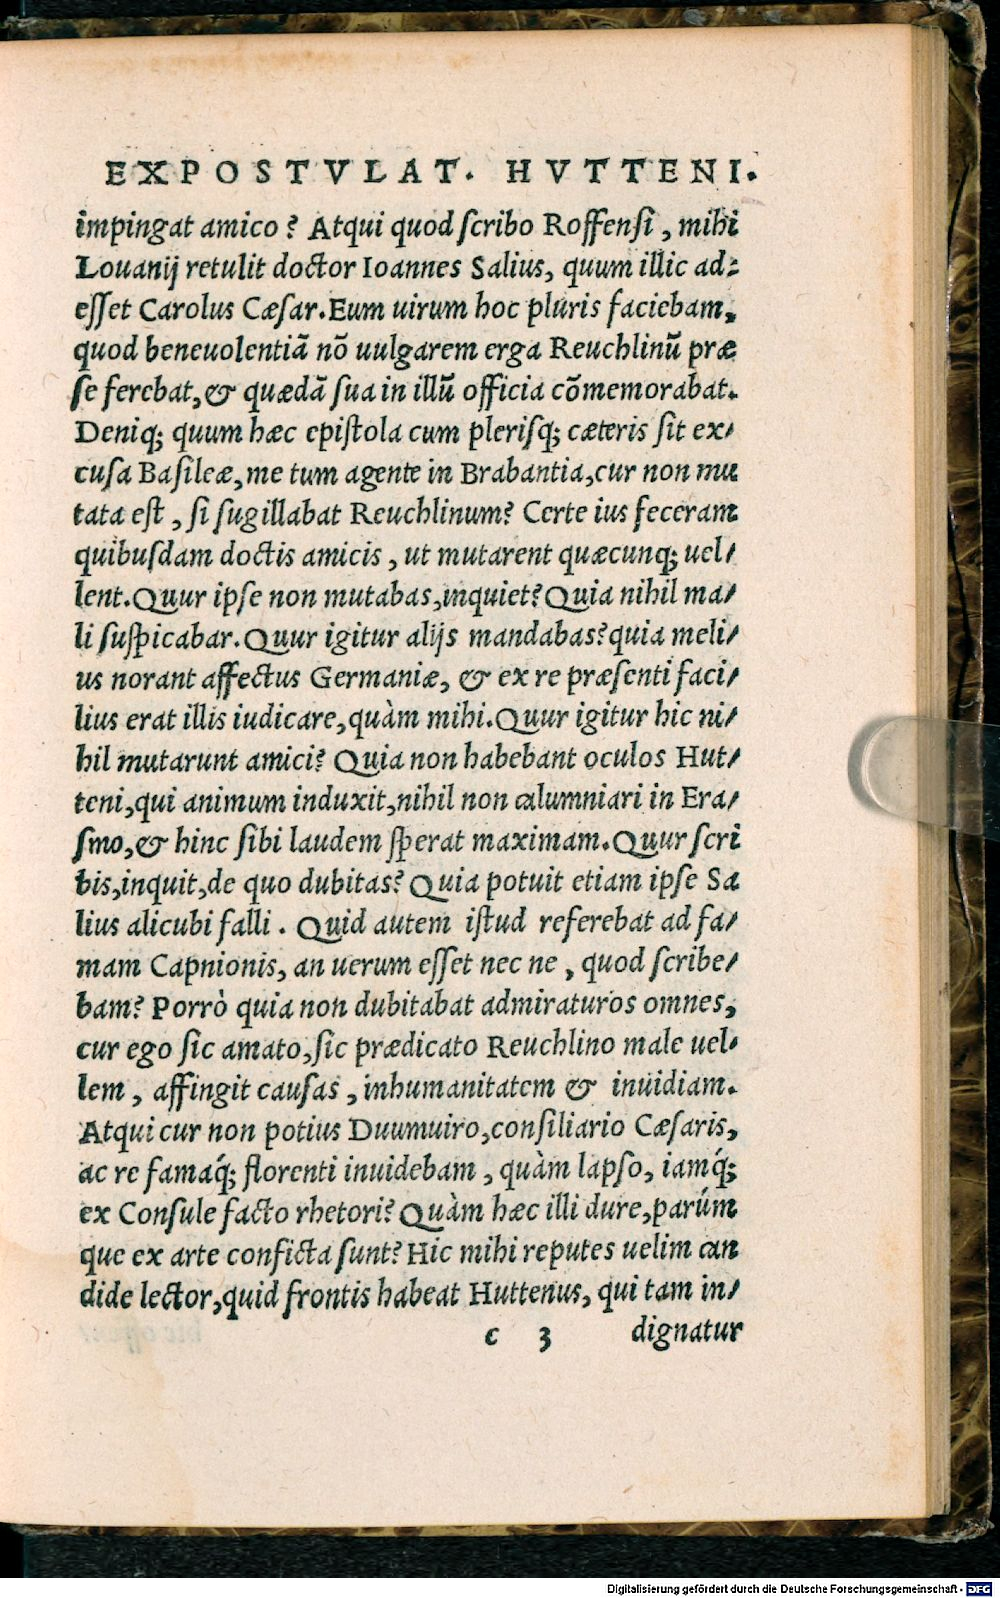 EXPOSTVLAT. HVTTENI.
impingat amico? Atqui quod ſcribo Roffenſi, mihi
Louanij retulit doctor Ioannes Salius, quum illic ad⸗
eſſet Carolus Cæſar. Eum uirum hoc pluris faciebam,
quod beneuolentiã nõ uulgarem erga Reuchlinũ præ
ſe ferebat, & quædã ſua in illũ officia cõmemorabat.
Deniq; quum hæc epiſtola cum plerisq; cæteris ſit ex/
cuſa Baſileæ, me tum agente in Brabantia, cur non mu
tata eſt, ſi ſugillabat Reuchlinum? Certe ius feceram
quibuſdam doctis amicis, ut mutarent quæcunq; uel/
lent. Quur ipſe non mutabas, inquiet? Quia nihil ma/
li ſuſpicabar. Quur igitur alijs mandabas? quia meli/
us norant affectus Germaniæ, & ex re præſenti faci/
lius erat illis iudicare, quàm mihi. Quur igitur hic ni/
hil mutarunt amici? Quia non habebant oculos Hut/
teni, qui animum induxit, nihil non calumniari in Era/
ſmo, & hinc ſibi laudem ſperat maximam. Quur ſcri
bis, inquit, de quo dubitas? Quia potuit etiam ipſe Sa
lius alicubi falli. Quid autem iſtud referebat ad fa/
mam Capnionis, an uerum eſſet nec ne, quod ſcribe/
bam? Porrò quia non dubitabat admiraturos omnes,
cur ego ſic amato, ſic prædicato Reuchlino male uel/
lem, affingit cauſas, inhumanitatem & inuidiam.
Atqui cur non potius Duumuiro, conſiliario Cæſaris,
ac re famaq́; florenti inuidebam, quàm lapſo, iamq́;
ex Conſule facto rhetori? Quàm hæc illi dure, parúm
que ex arte conficta ſunt? Hic mihi reputes uelim can
dide lector, quid frontis habeat Huttenus, qui tam in/
c 3 dignatur
Digitalisierung gefördert durch die Deutsche Forschungsgemeinschaft - DFG